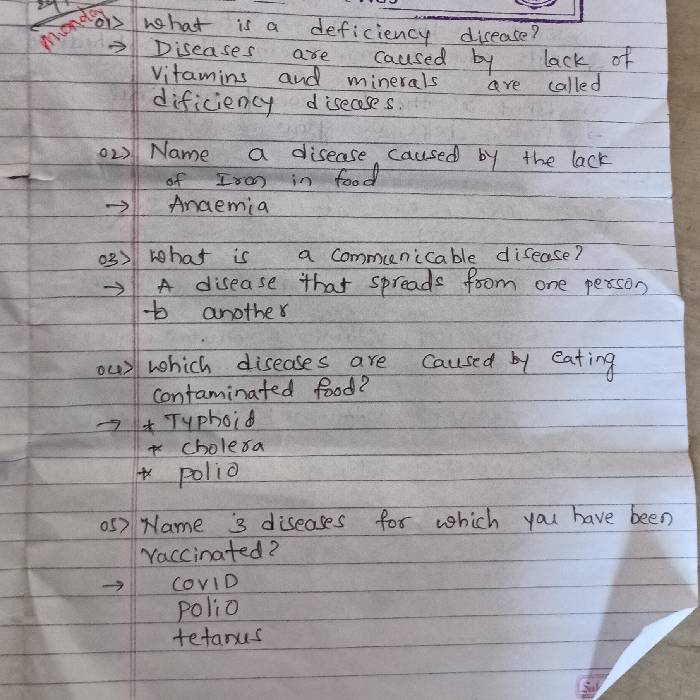 Monday
01> What is a deficiency disease?
→ Diseases are caused by lack of
vitamins and minerals are called
dificiency diseases.
02> Name a disease caused by the lack
of Iron in food
→ Anaemia
03> What is a communicable disease?
→ A disease that spreads from one person
to another
04> which diseases are caused by eating
contaminated food?
→ * Typhoid
* cholera
* polio
05> Name 3 diseases for which you have been
vaccinated?
→ COVID
polio
tetanus